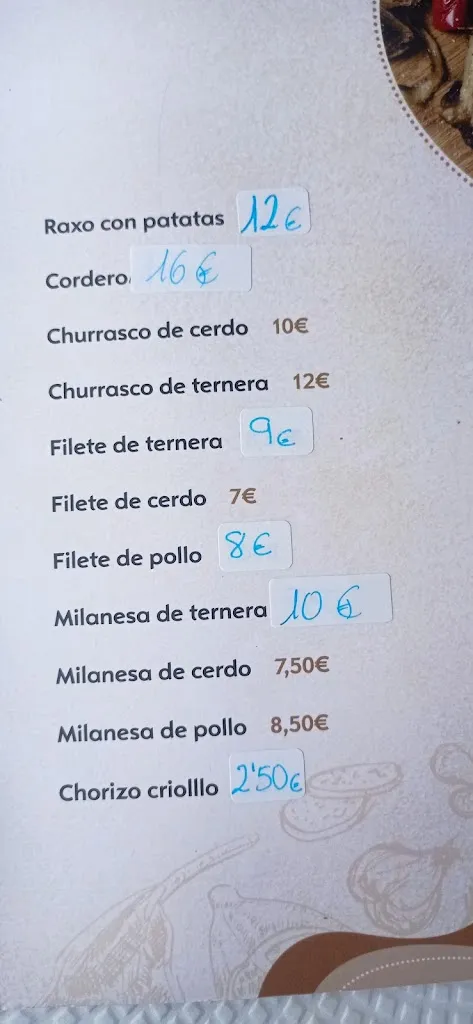 Raxo con patatas 12€
Cordero 16€
Churrasco de cerdo 10€
Churrasco de ternera 12€
Filete de ternera 9€
Filete de cerdo 7€
Filete de pollo 8€
Milanesa de ternera 10€
Milanesa de cerdo 7,50€
Milanesa de pollo 8,50€
Chorizo criolllo 2'50€